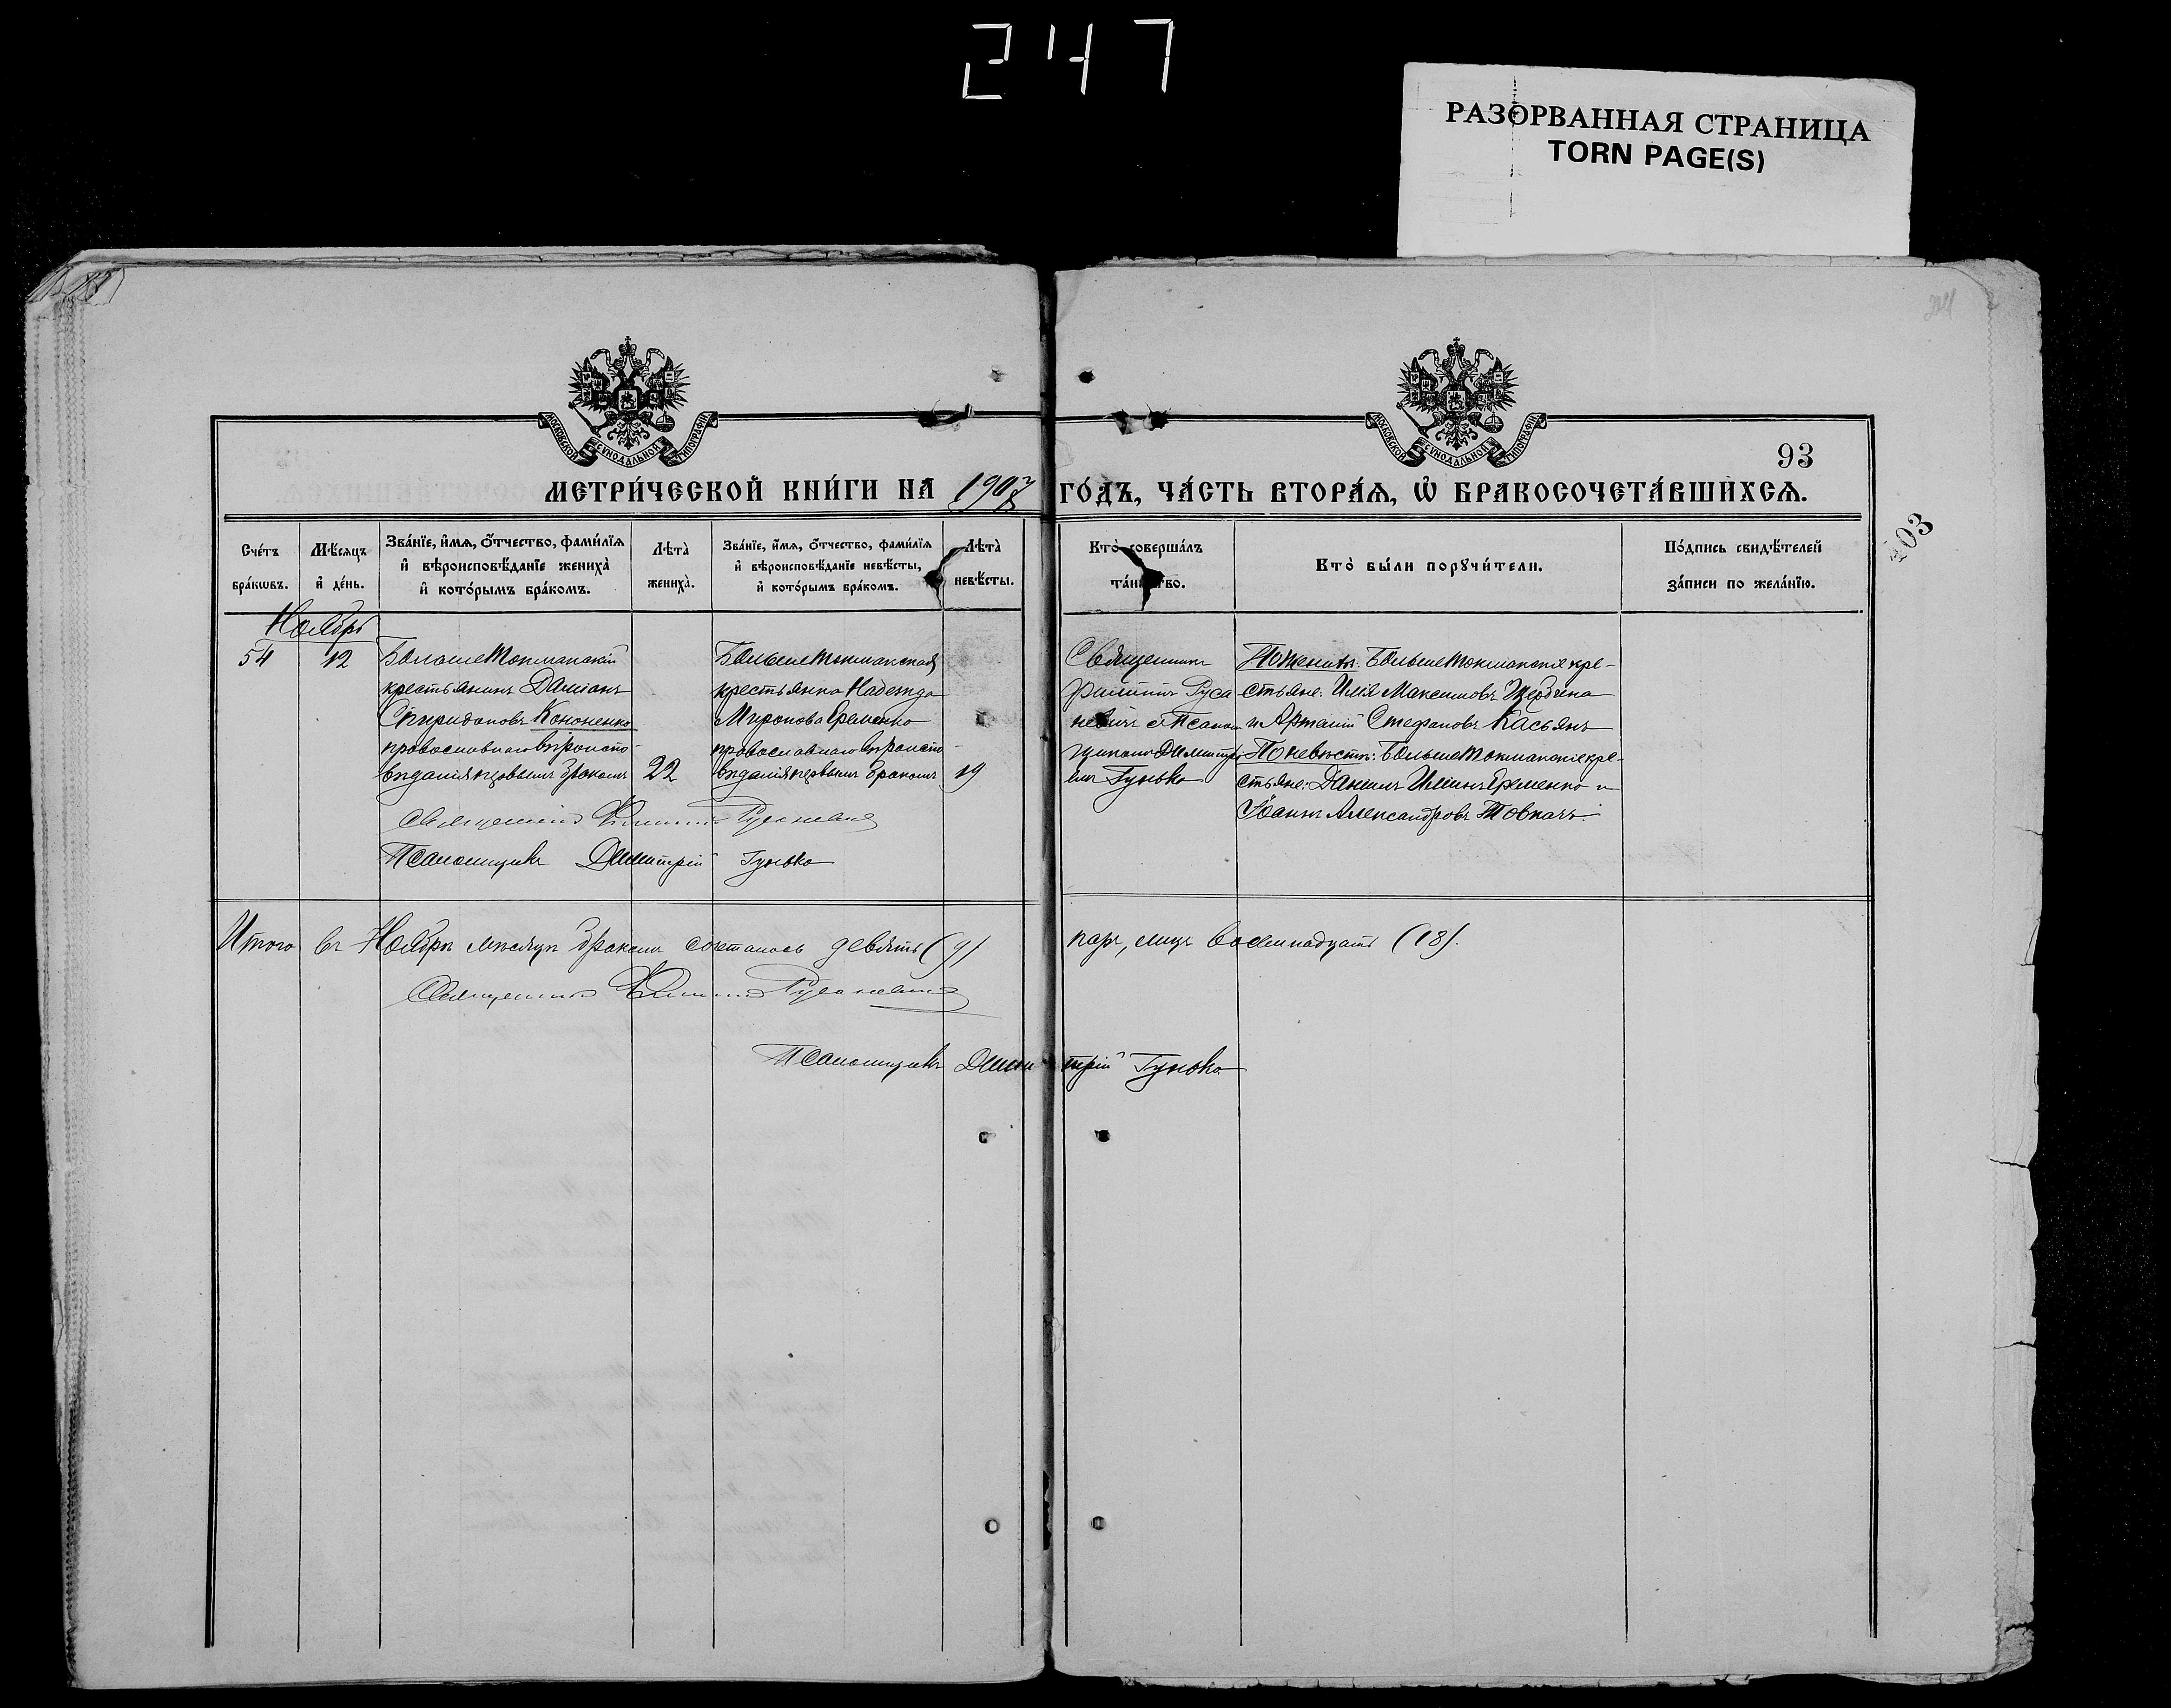 247
РАЗОРВАННАЯ СТРАНИЦА
TORN PAGE(S)
МОСКОВСКОЙ СѴНОДАЛЬНОЙ ТИПОГРАФІИ
МОСКОВСКОЙ СѴНОДАЛЬНОЙ ТИПОГРАФІИ
93
МЕТРИ́ЧЕСКОЙ КНИ́ГИ НА 1907 ГО́ДЪ, ЧА́СТЬ ВТОРА́Я, Ѡ БРАКОСОЧЕТА́ВШИХСЯ.
103
Сче́тъ бра́кѡвъ.
Мѣ́сяцъ и҆ де́нь.
Зва́нїе, и҆́мя, ѻ҆́тчество, фами́лїя
и҆ вѣроисповѣ́данїе жениха̀
и҆ кото́рымъ бра́комъ.
Лѣта̀ жениха̀.
Зва́нїе, и҆́мя, ѻ҆́тчество, фами́лїя
и҆ вѣроисповѣ́данїе невѣ́сты,
и҆ кото́рымъ бра́комъ.
Лѣта̀ невѣ́сты.
Кто̀ соверша́лъ та́инство.
Кто̀ бы́ли порꙋчи́тели.
По́дпись свидѣ́телей
за́писи по жела́нїю.
Ноябрь
54
12
Большетокмакскій
крестьянинъ Даміанъ
Спиридоновъ Кононенко
православнаго вѣроиспо-
вѣданія первымъ бракомъ
22
Большетокмакская
крестьянка Надежда
Миронова Еременко
православнаго вѣроиспо-
вѣданія первымъ бракомъ
19
Священникъ
Филиппъ Руса
невичъ съ Псалом
щикомъ Димитрі-
емъ Гунько
По женихѣ: Большетокмакскіе кре-
стьяне: Илія Максимовъ Щербина
и Артемій Стефановъ Касьянъ
По невѣстѣ: Большетокмакскіе кре-
стьяне: Даніилъ Иліинъ Еременко и
Іоаннъ Александровъ Товкачъ.
Священникъ Филиппъ Русаневичъ
Псаломщикъ Димитрій Гунько
Итого въ Ноябрѣ мѣсяцѣ бракомъ сочеталось девять (9) паръ, лицъ восемнадцать (18).
Священникъ Филиппъ Русаневичъ
Псаломщикъ Димитрій Гунько